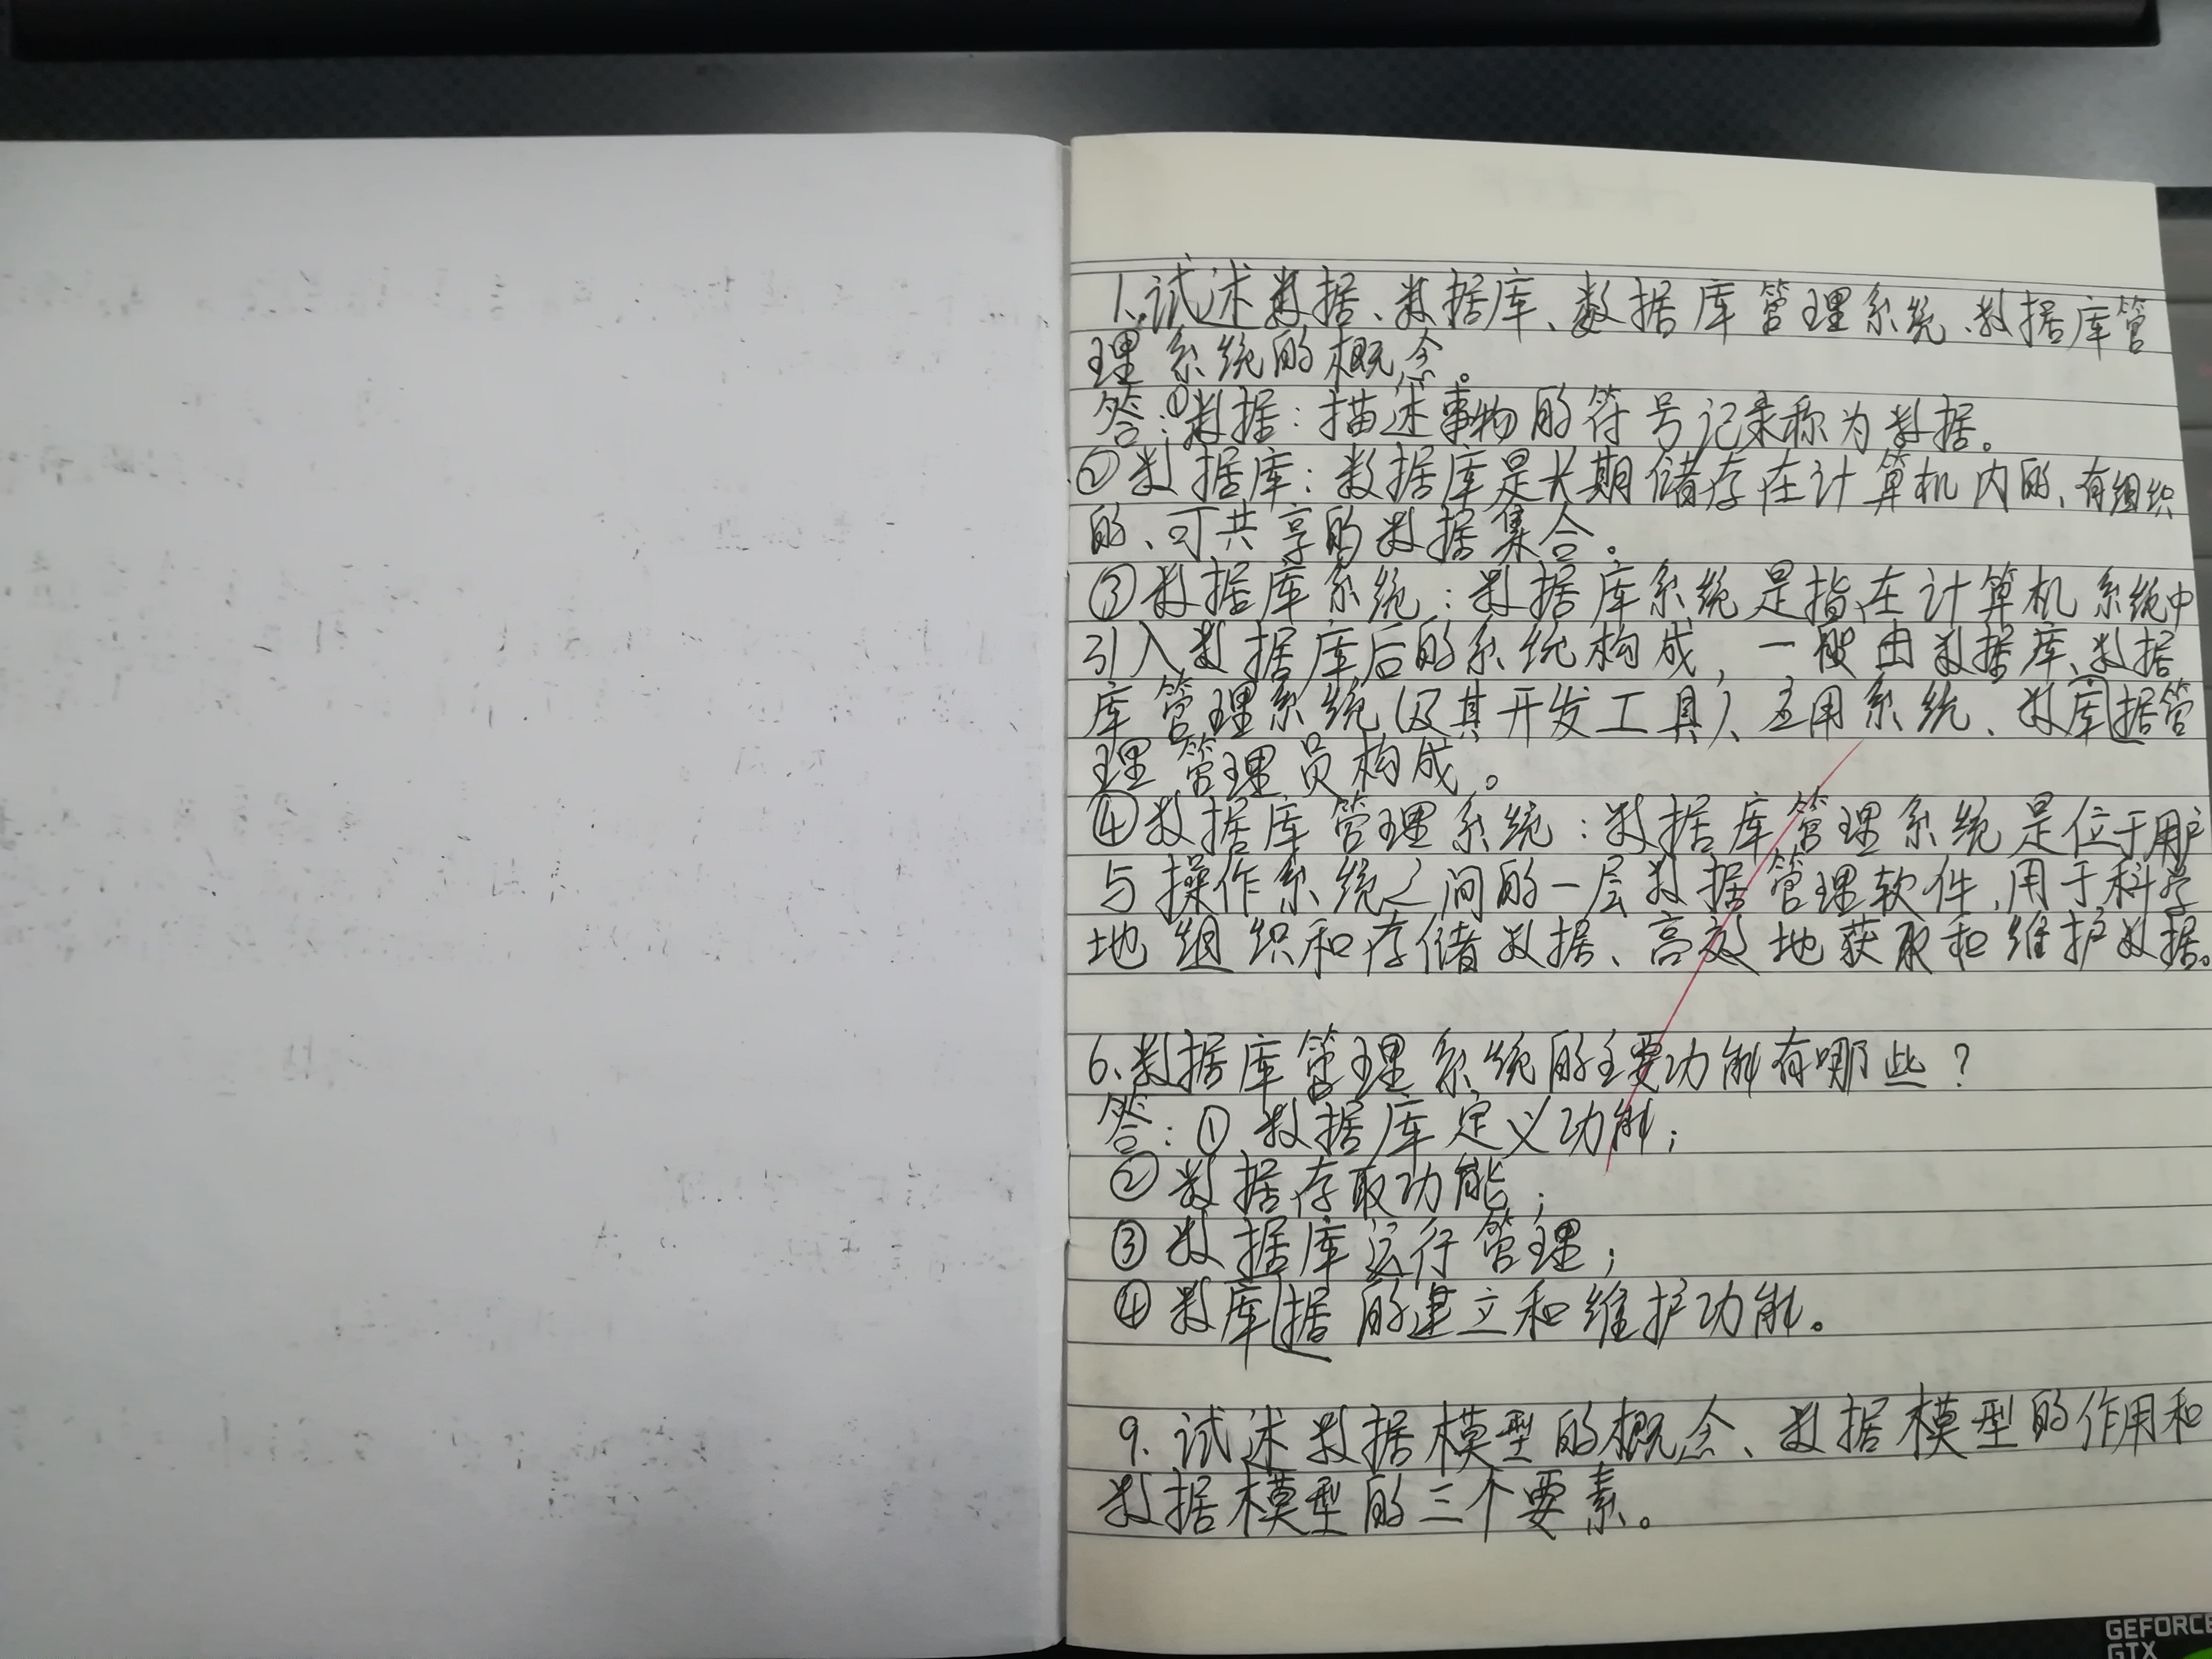 1.试述数据、数据库、数据库管理系统、数据库管
理系统的概念。
答:①数据:描述事物的符号记录称为数据。
②数据库:数据库是长期储存在计算机内的、有组织
的、可共享的数据集合。
③数据库系统:数据库系统是指在计算机系统中
引入数据库后的系统构成,一般由数据库、数据
库管理系统(及其开发工具)、应用系统、数库据管
理管理员构成。
④数据库管理系统:数据库管理系统是位于用户
与操作系统之间的一层数据管理软件,用于科学
地组织和存储数据、高效地获取和维护数据。
6.数据库管理系统的主要功能有哪些?
答:①数据库定义功能;
②数据存取功能;
③数据库运行管理;
④数库据的建立和维护功能。
9.试述数据模型的概念、数据模型的作用和
数据模型的三个要素。
GEFORCE
GTX